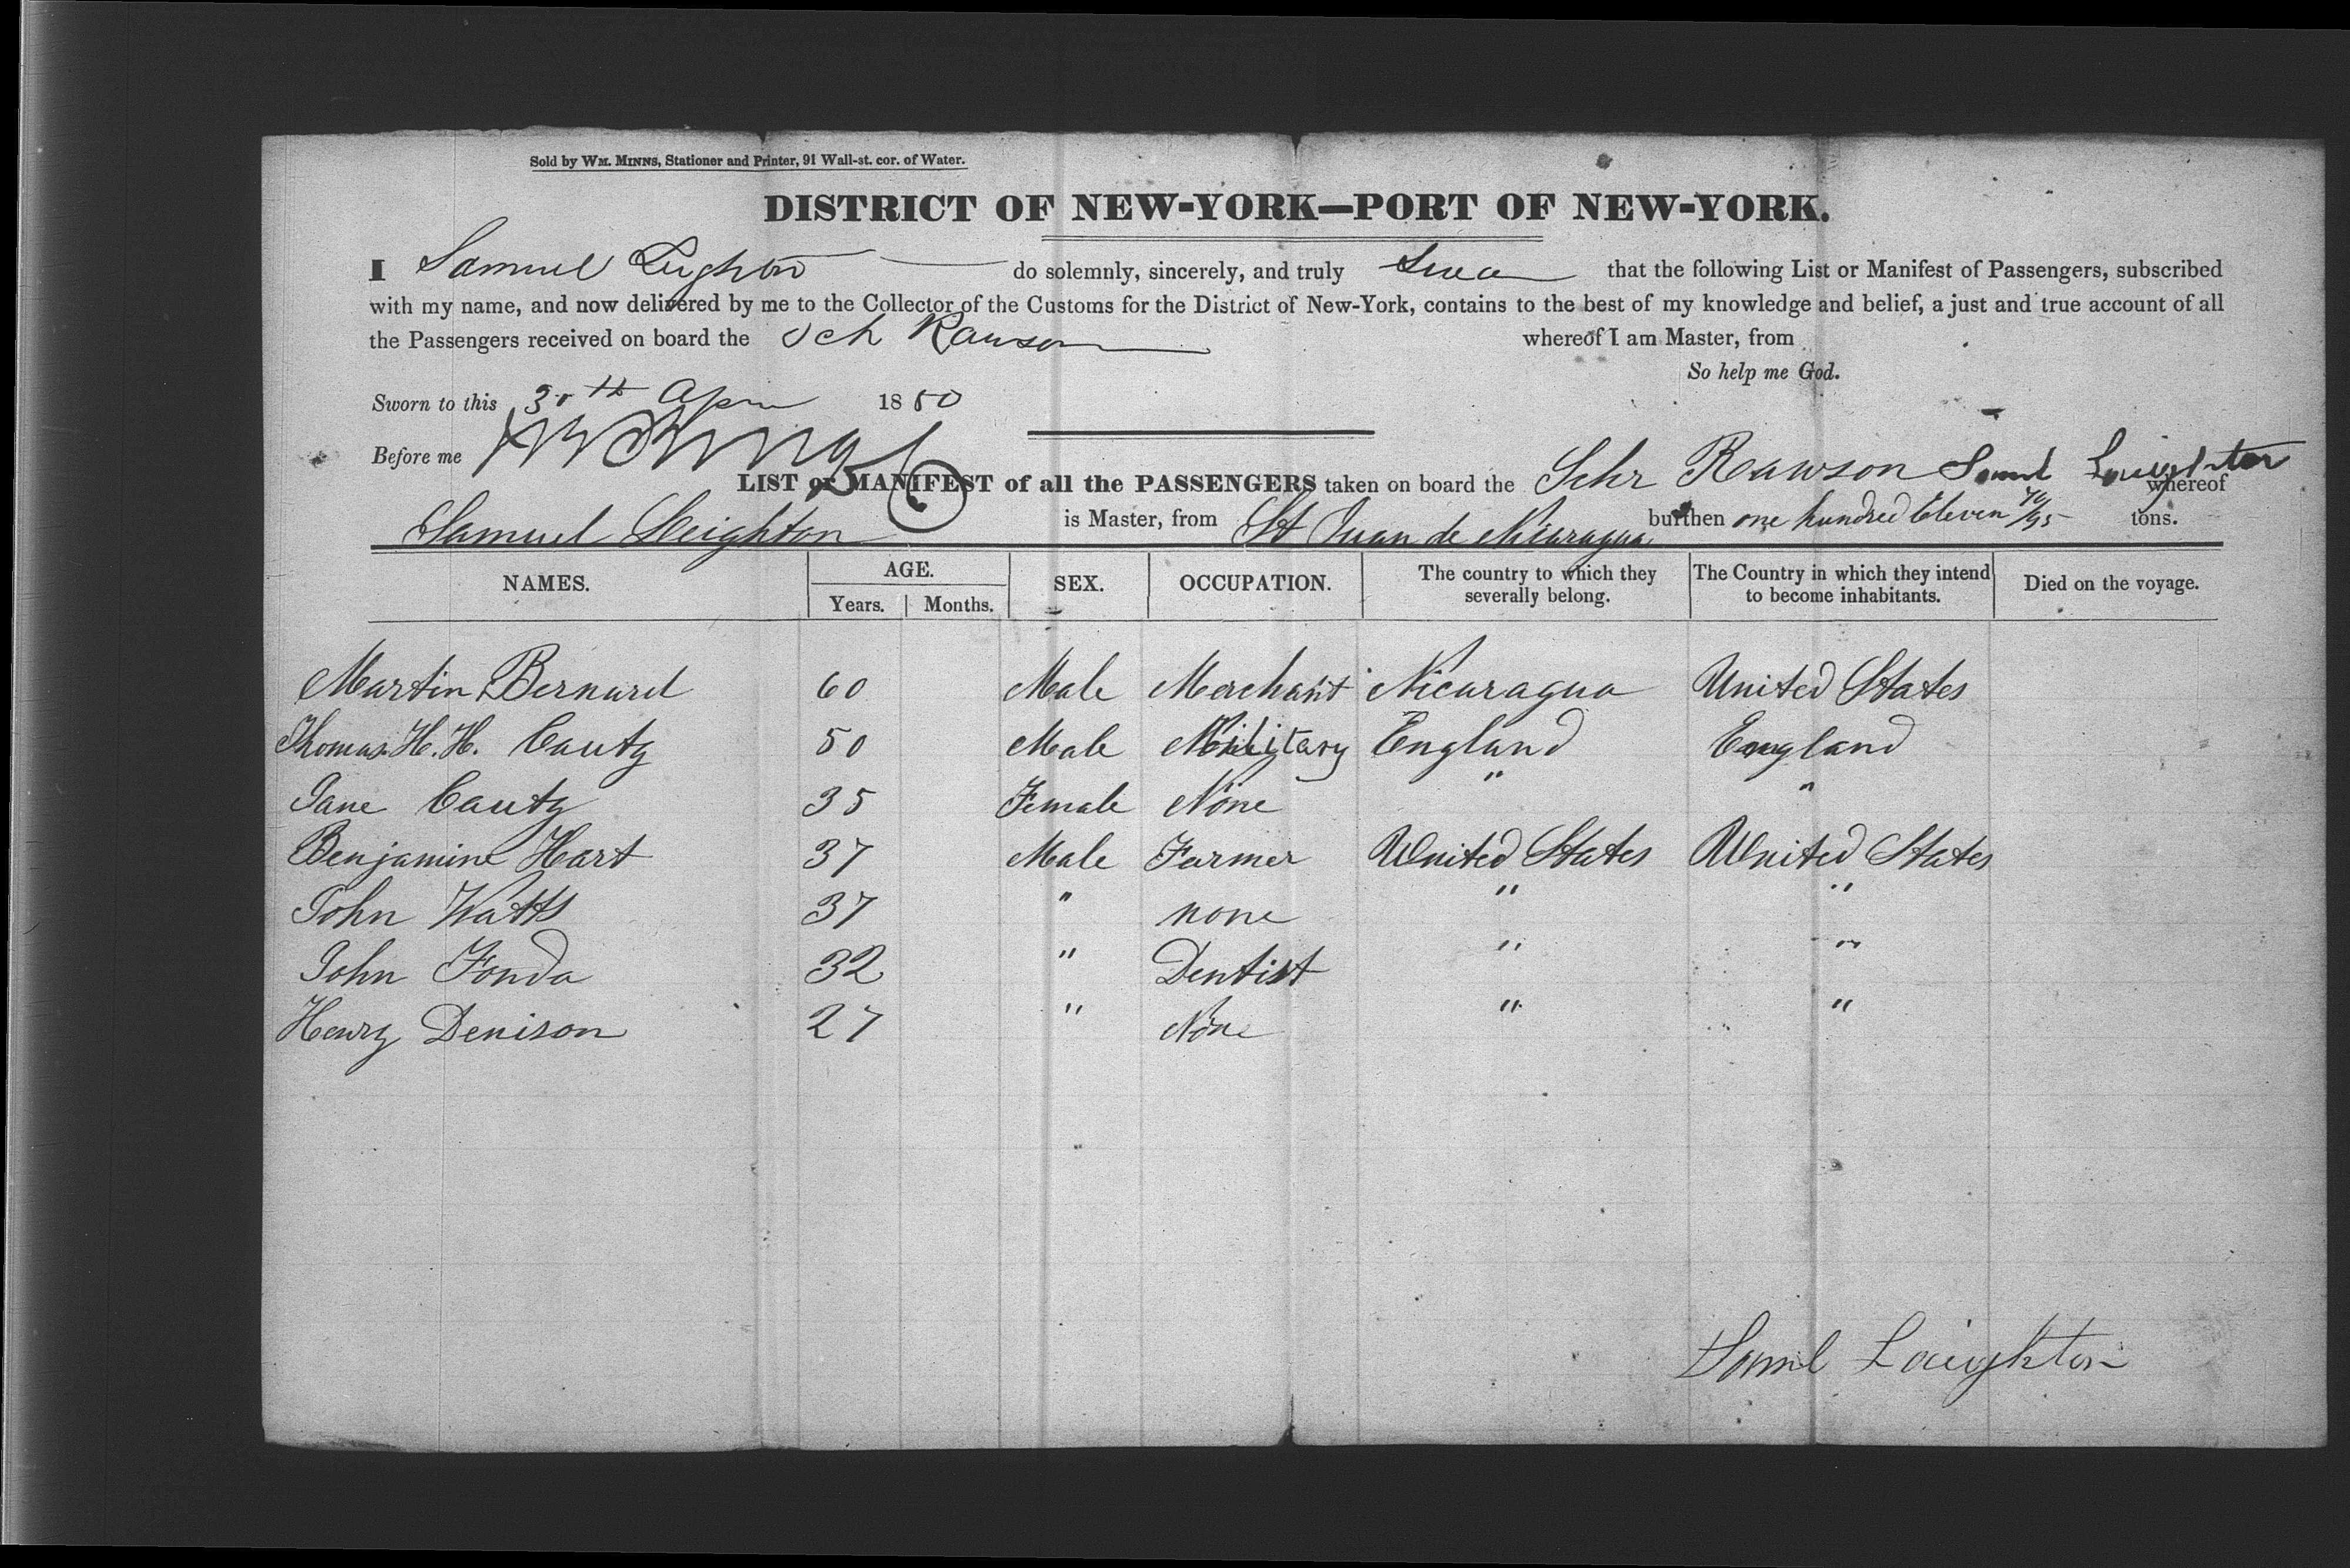 Sold by WM. MINNS, Stationer and Printer, 91 Wall-st. cor. of Water.
DISTRICT OF NEW-YORK—PORT OF NEW-YORK.
I Samuel Leighton do solemnly, sincerely, and truly Swear that the following List or Manifest of Passengers, subscribed
with my name, and now delivered by me to the Collector of the Customs for the District of New-York, contains to the best of my knowledge and belief, a just and true account of all
the Passengers received on board the Sch Rawson whereof I am Master, from
So help me God.
Sworn to this 30th Apr 1850
Before me
LIST or MANIFEST of all the PASSENGERS taken on board the Schr Rawson Saml Laighton whereof
Samuel Leighton is Master, from St Juan de Nicaragua burthen one hundred Eleven 70/95 tons.
NAMES. AGE. SEX. OCCUPATION. The country to which they severally belong. The Country in which they intend to become inhabitants. Died on the voyage.
Years. Months.
Martin Bernard 60 Male Merchant Nicaragua United States
Thomas H. H. Cauty 50 Male Military England England
Jane Cauty 35 Female None " "
Benjamine Hart 37 Male Farmer United States United States
John Watts 37 " none " "
John Fonda 32 " Dentist " "
Henry Denison 27 " None " "
Saml Laighton